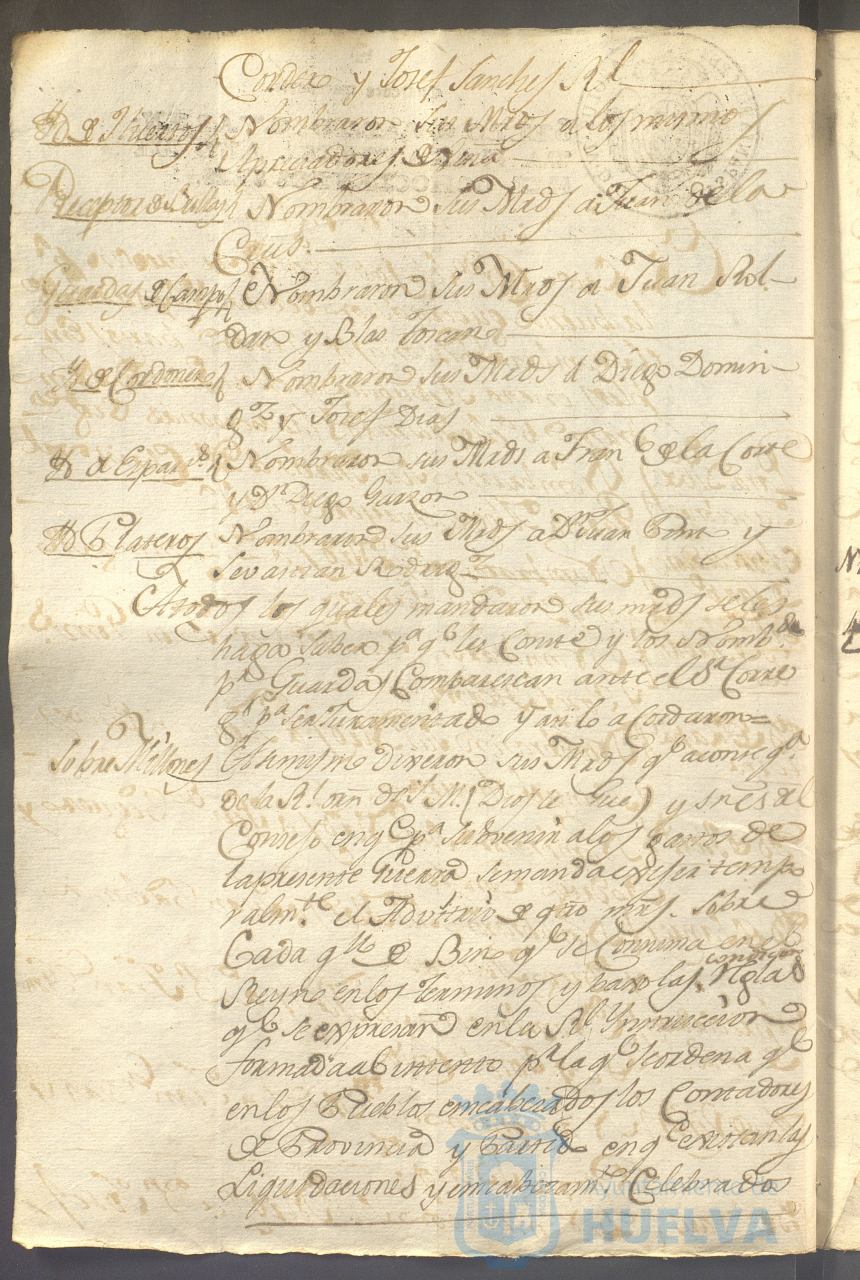 Cordero y Josef Sanches Rl
Yd de Huertos Nombraron sus Mrds a los mismos
Apreciadores de
Receptor de Bullas Nombraron sus Mrds a Juan de la
Crus.
Guardas de Campo Nombraron sus Mrds a Juan Rol-
dan y Blas Toscano
Yd de Cordoneros Nombraron sus Mrds a Diego Domin-
gz y Josef Dias
Yd de Espart.s Nombraron sus Mrds a Franco de la Corte
y Dn Diego Garzon
Yd Plateros Nombraron sus Mrds a Dn Juan Pont y
Sevastian Rodrigz
A todos los quales mandaron sus mrds se les
haga saber pa qe les Conste y los Nombdos
pa Guardas Comparescan ante el Sr Corre
gr pa ser Juramentado y asi lo acordaron=
Sobre Millones Asimismo dixeron sus Mrds qe a conseqa
de la Rl orn de S. M. (Dios le Gue) y sres del
Consejo en qe pa subvenir a los gastos de
la presente Guerra se manda exsijir tempo
ralmte el Advitrio de qtro mrs. sobre
Cada qllo de Bino qe se Consuma en el
Reyno en los terminos y baxo las condiciones Reglas
qe se expresan en la Rl Ynstruccion
formada al intento pr la qe se ordena qe
en los Pueblos encabezados los Contadores
de Provincia y Partido en qe existan las
Liquidaciones y encabezamtos Celebrados
Ayuntamiento de
HUELVA